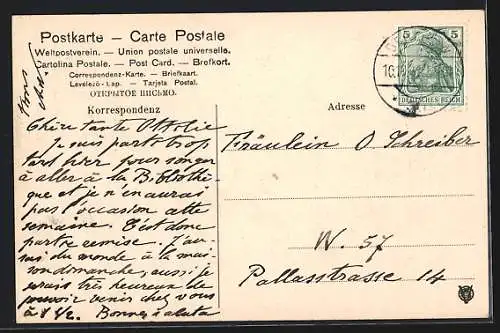 Postkarte – Carte Postale
Weltpostverein. – Union postale universelle.
Cartolina Postale. – Post Card. – Brefkort.
Correspondenz-Karte. – Briefkaart.
Levelező-Lap. – Tarjeta Postal.
ОТКРЫТОЕ ПИСЬМО.
Korrespondenz
Adresse
5 5
DEUTSCHES REICH
Chère tante Ottilie
Je suis parti trop
tard hier pour songer
à aller à la Bibliothè-
que et je n'en aurai
pas l'occasion cette
semaine. C'est donc
partie remise. J'au-
rai du monde à la mai-
son dimanche, aussi je
serais très heureux de
pouvoir venir chez vous
à 8 1/2. Bonnes saluts
Fräulein O Schreiber
W. 57
Pallasstrasse 14